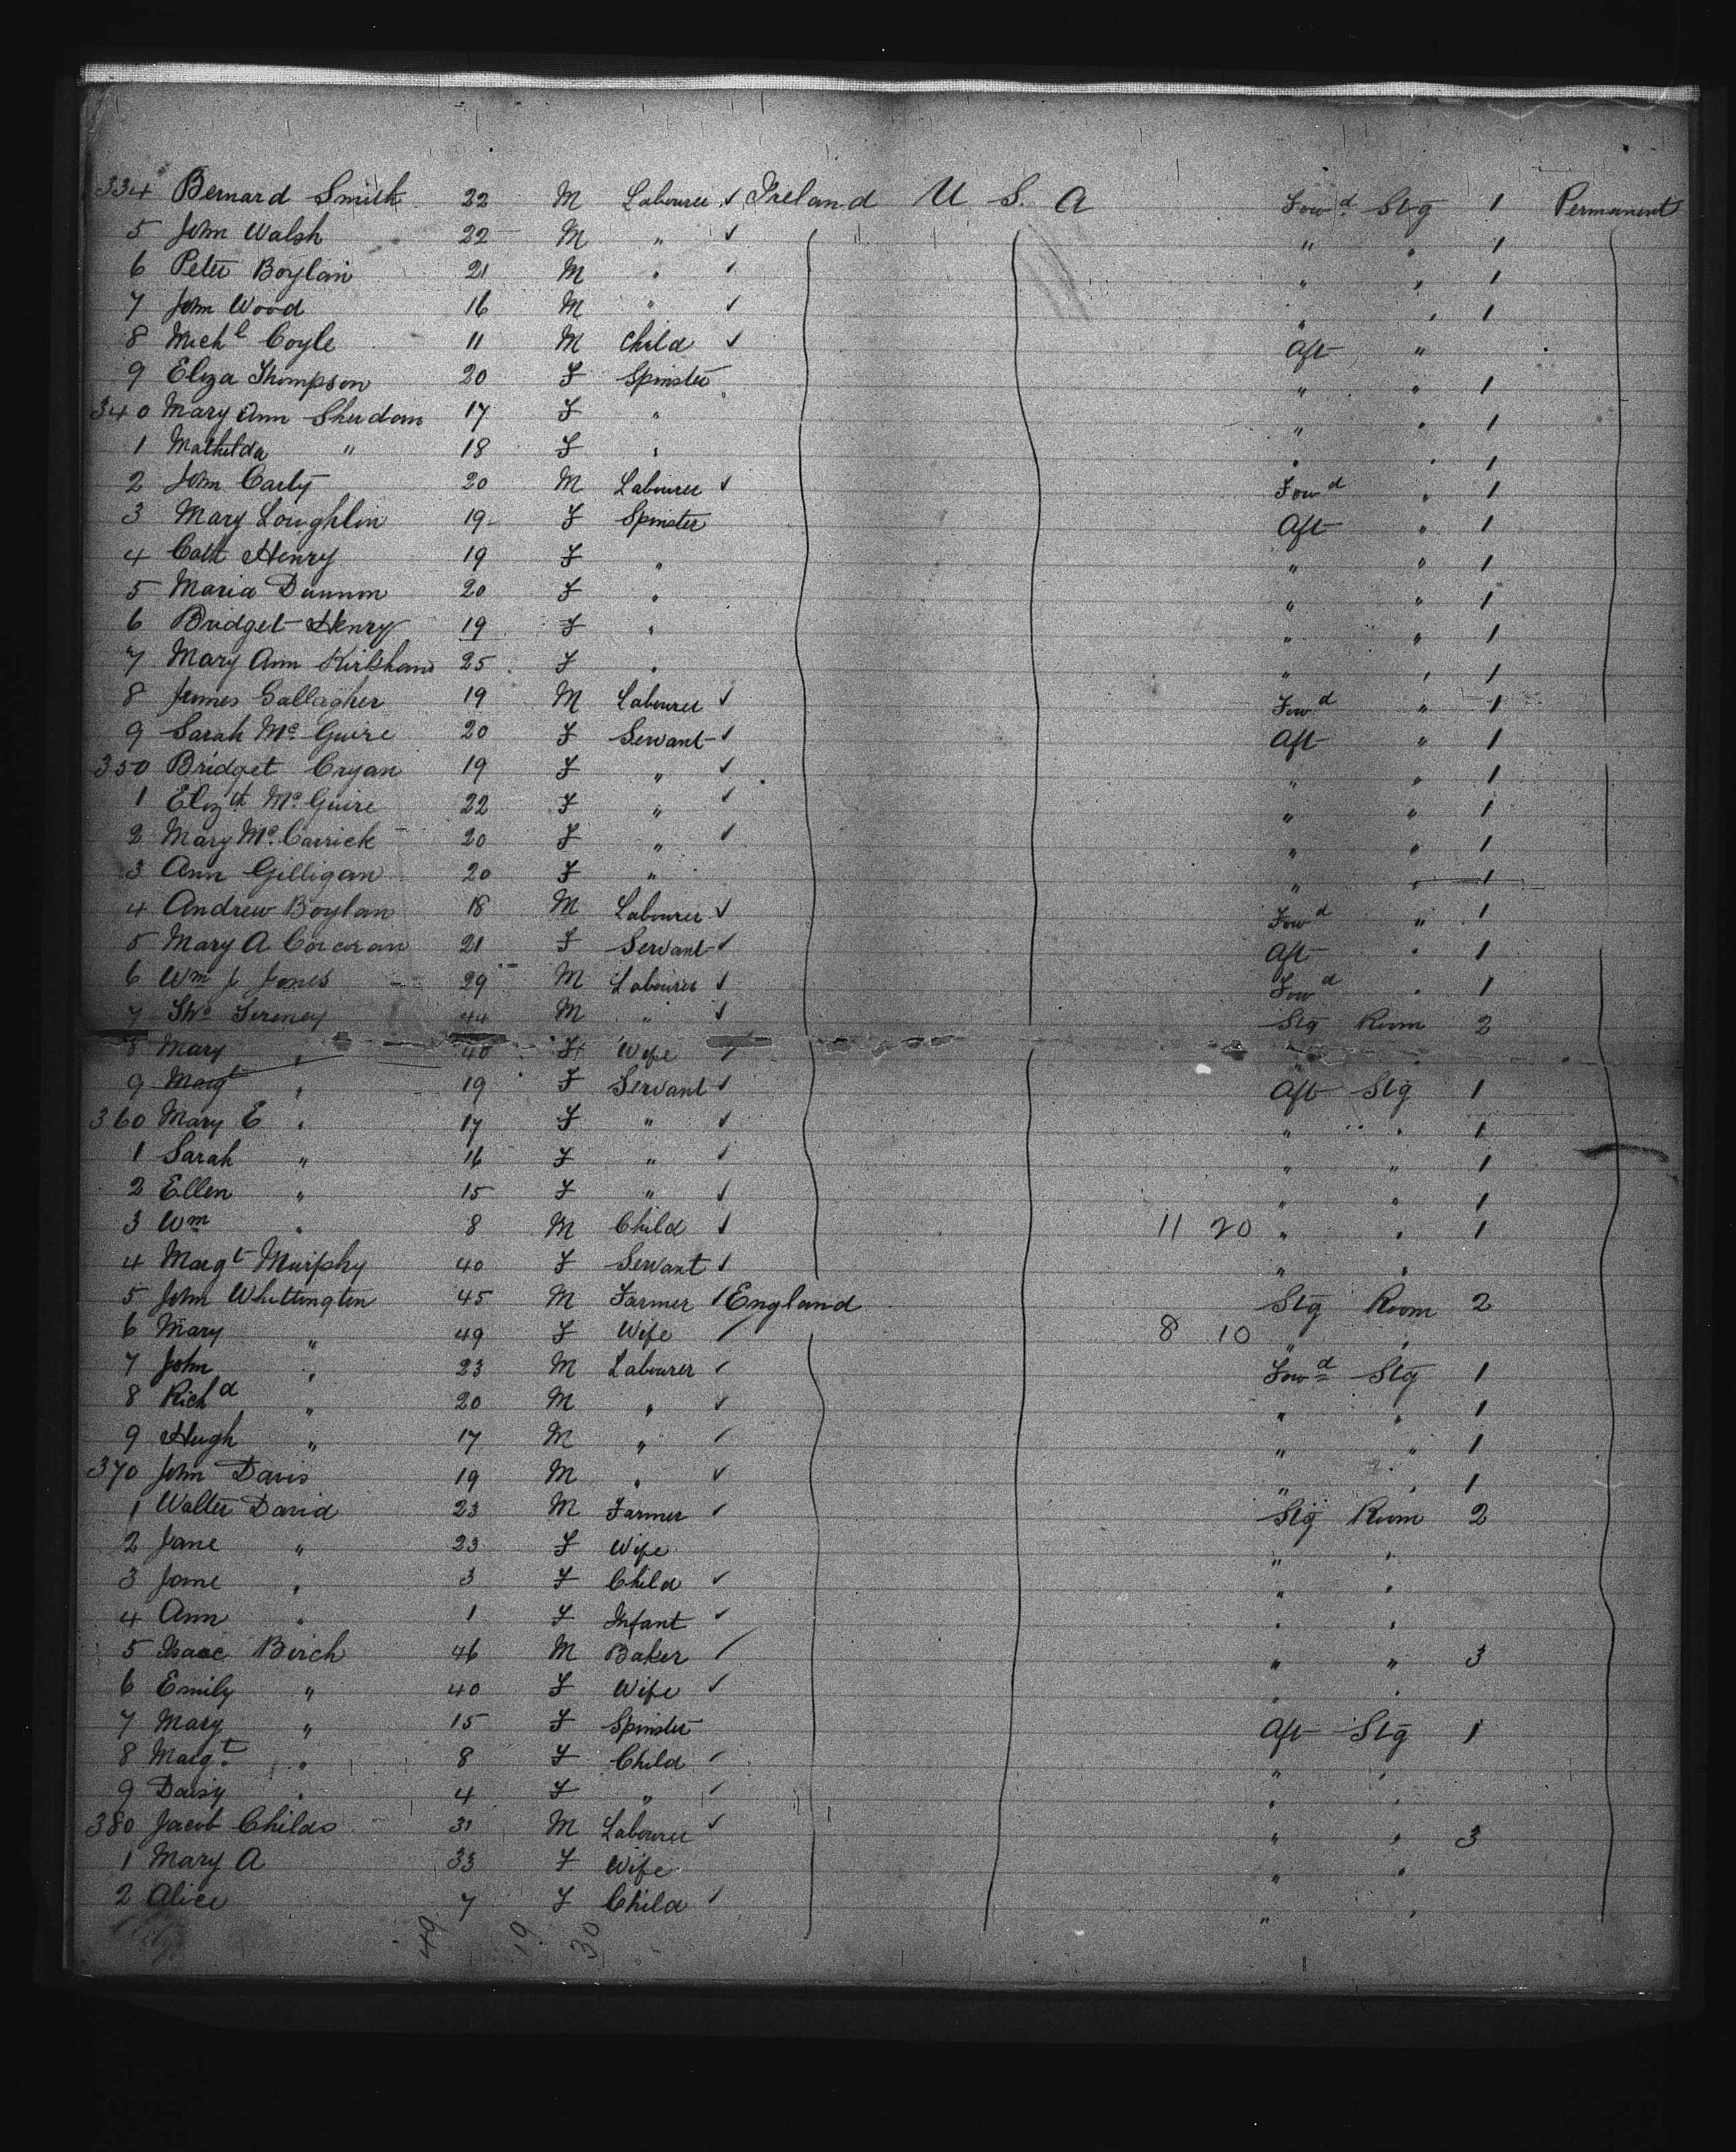 334 Bernard Smith 22 M Labourer ✓ Ireland U S. A Fowd Stg 1 Permanent
5 John Walsh 22 M " ✓ " " 1
6 Peter Boylan 21 M " ✓ " " 1
7 John Wood 16 M " ✓ " " 1
8 Michl Coyle 11 M Child ✓ Aft "
9 Eliza Thompson 20 F Spinster " " 1
340 Mary Ann Sheridan 17 F " " " 1
1 Mathilda " 18 F " " " 1
2 John Carty 20 M Labourer ✓ Fowd " 1
3 Mary Loughlin 19 F Spinster Aft " 1
4 Cath Henry 19 F " " " 1
5 Maria 20 F " " " 1
6 Bridget Henry 19 F " " " 1
7 Mary Ann 25 F " " " 1
8 James Gallagher 19 M Labourer ✓ Fowd " 1
9 Sarah Mc Guire 20 F Servant ✓ Aft " 1
350 Bridget Cryan 19 F " ✓ " " 1
1 Elizth Mc Guire 22 F " ✓ " " 1
2 Mary Mc Carrick 20 F " ✓ " " 1
3 Ann Gilligan 20 F " " " 1
4 Andrew Boylan 18 M Labourer ✓ Fowd " 1
5 Mary A Corcoran 21 F Servant ✓ Aft " 1
6 Wm J Jones 29 M Labourer ✓ Fowd " 1
7 Thos 44 M " ✓ Stg Room 2
8 Mary " 40 F Wife ✓ " "
9 Margt " 19 F Servant ✓ Aft Stg 1
360 Mary E " 17 F " ✓ " " 1
1 Sarah " 16 F " ✓ " " 1
2 Ellen " 15 F " ✓ " " 1
3 Wm " 8 M Child ✓ 11 20 " " 1
4 Margt Murphy 40 F Servant ✓ " "
5 John Whittington 45 M Farmer ✓ England Stg Room 2
6 Mary " 49 F Wife ✓ 8 10 " "
7 John " 23 M Labourer ✓ Fowd Stg 1
8 Richd " 20 M " ✓ " " 1
9 Hugh " 17 M " ✓ " " 1
370 John Davis 19 M " ✓ " " 1
1 Walter David 23 M Farmer ✓ Stg Room 2
2 Jane " 23 F Wife " "
3 Jane " 3 F Child ✓ " "
4 Ann " 1 F Infant ✓ " "
5 Isaac Birch 46 M Baker ✓ " " 3
6 Emily " 40 F Wife ✓ " "
7 Mary " 15 F Spinster Aft Stg 1
8 Margt " 8 F Child ✓ " "
9 Daisy " 4 F " ✓ " "
380 Jacob Childs 31 M Labourer ✓ " " 3
1 Mary A 33 F Wife " "
2 Alice 7 F Child ✓ " "
49 19 30